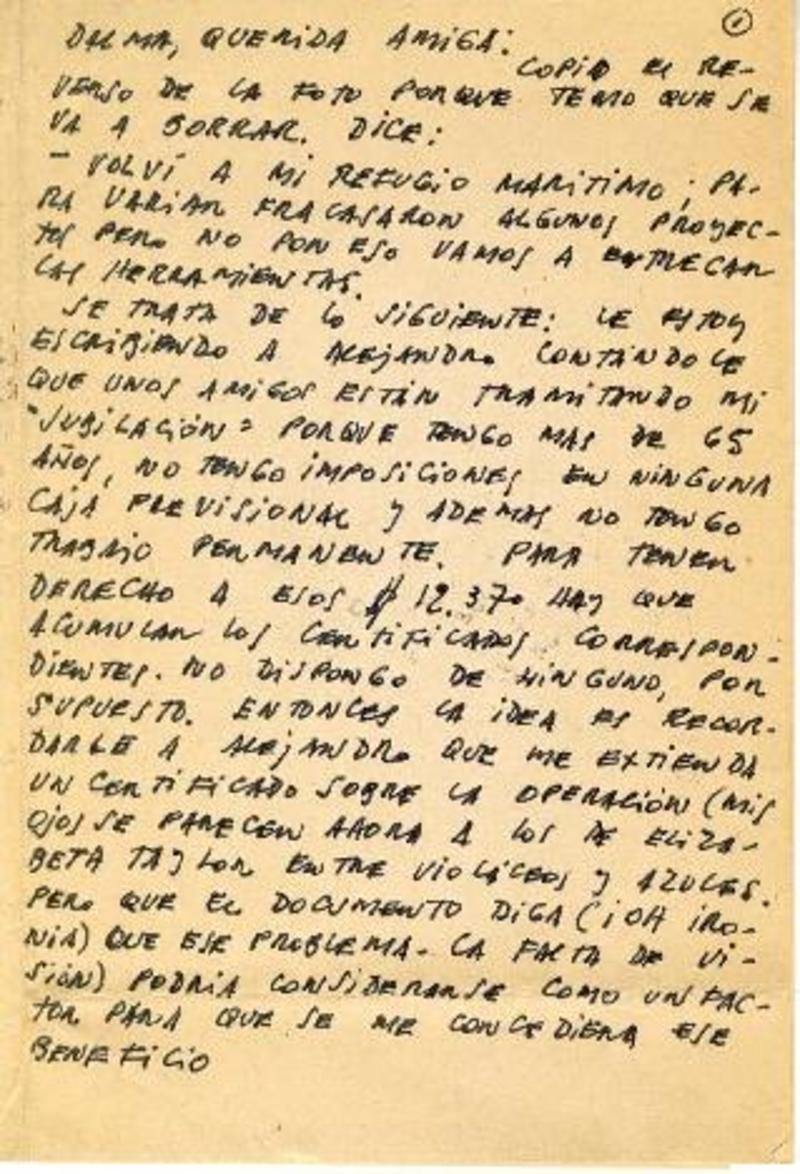 1
DALMA, QUERIDA AMIGA:
COPIO EL RE-
VERSO DE LA FOTO PORQUE TEMO QUE SE
VA A BORRAR. DICE:
- VOLVÍ A MI REFUGIO MARITIMO; PA-
RA VARIAR FRACASARON ALGUNOS PROYEC-
TOS PERO NO POR ESO VAMOS A ENTREGAR
LAS HERRAMIENTAS.
SE TRATA DE LO SIGUIENTE: LE ESTOY
ESCRIBIENDO A ALEJANDRO CONTÁNDOLE
QUE UNOS AMIGOS ESTÁN TRAMITANDO MI
"JUBILACIÓN" PORQUE TENGO MAS DE 65
AÑOS, NO TENGO IMPOSICIONES EN NINGUNA
CAJA PREVISIONAL Y ADEMAS NO TENGO
TRABAJO PERMANENTE. PARA TENER
DERECHO A ESOS $ 12.370 HAY QUE
ACUMULAR LOS CERTIFICADOS CORRESPON-
DIENTES. NO DISPONGO DE NINGUNO, POR
SUPUESTO. ENTONCES LA IDEA ES RECOR-
DARLE A ALEJANDRO QUE ME EXTIENDA
UN CERTIFICADO SOBRE LA OPERACIÓN (MIS
OJOS SE PARECEN AHORA A LOS DE ELIZA-
BETA TAYLOR ENTRE VIOLÁCEOS Y AZULES.
PERO QUE EL DOCUMENTO DIGA (¡OH IRO-
NIA) QUE ESE PROBLEMA - LA FALTA DE VI-
SIÓN) PODRÍA CONSIDERARSE COMO UN FAC-
TOR PARA QUE SE ME CONCEDIERA ESE
BENEFICIO